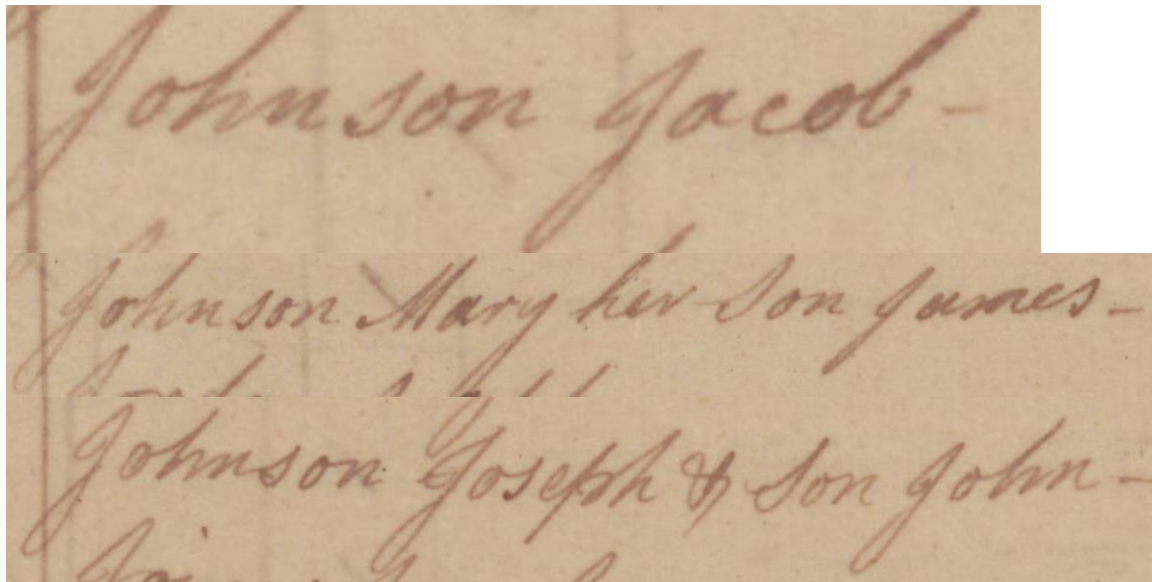 Johnson Jacob -
Johnson Mary her Son James -
Johnson Joseph & Son John -